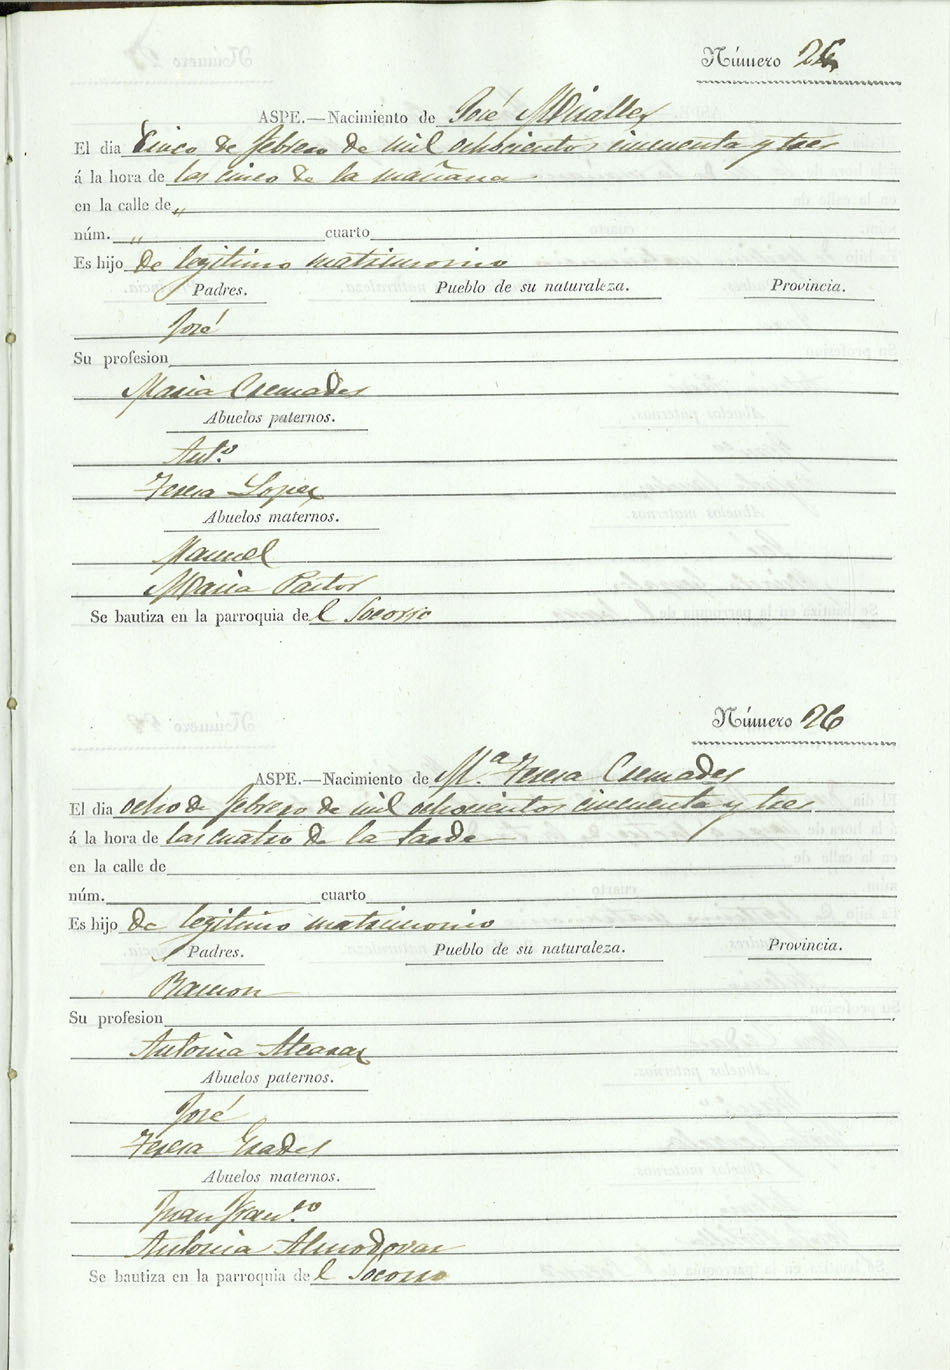 Número 25
ASPE.—Nacimiento de José Miralles
El dia Cinco de febrero de mil ochocientos cincuenta y tres
á la hora de las cinco de la mañana
en la calle de „
núm. „ cuarto
Es hijo de legitimo matrimonio
Padres. Pueblo de su naturaleza. Provincia.
José
Su profesion
Maria Cremades
Abuelos paternos.
Ant.º
Teresa Lopez
Abuelos maternos.
Manuel
Maria Pastor
Se bautiza en la parroquia de l Socorro
Número 26
ASPE.—Nacimiento de M.ª Teresa Cremades
El dia ocho de febrero de mil ochocientos cincuenta y tres
á la hora de las cuatro de la tarde
en la calle de
núm. cuarto
Es hijo de legitimo matrimonio
Padres. Pueblo de su naturaleza. Provincia.
Ramon
Su profesion
Antonia Alcaraz
Abuelos paternos.
José
Teresa Grades
Abuelos maternos.
Juan Fran.co
Antonia Almodovar
Se bautiza en la parroquia de l Socorro